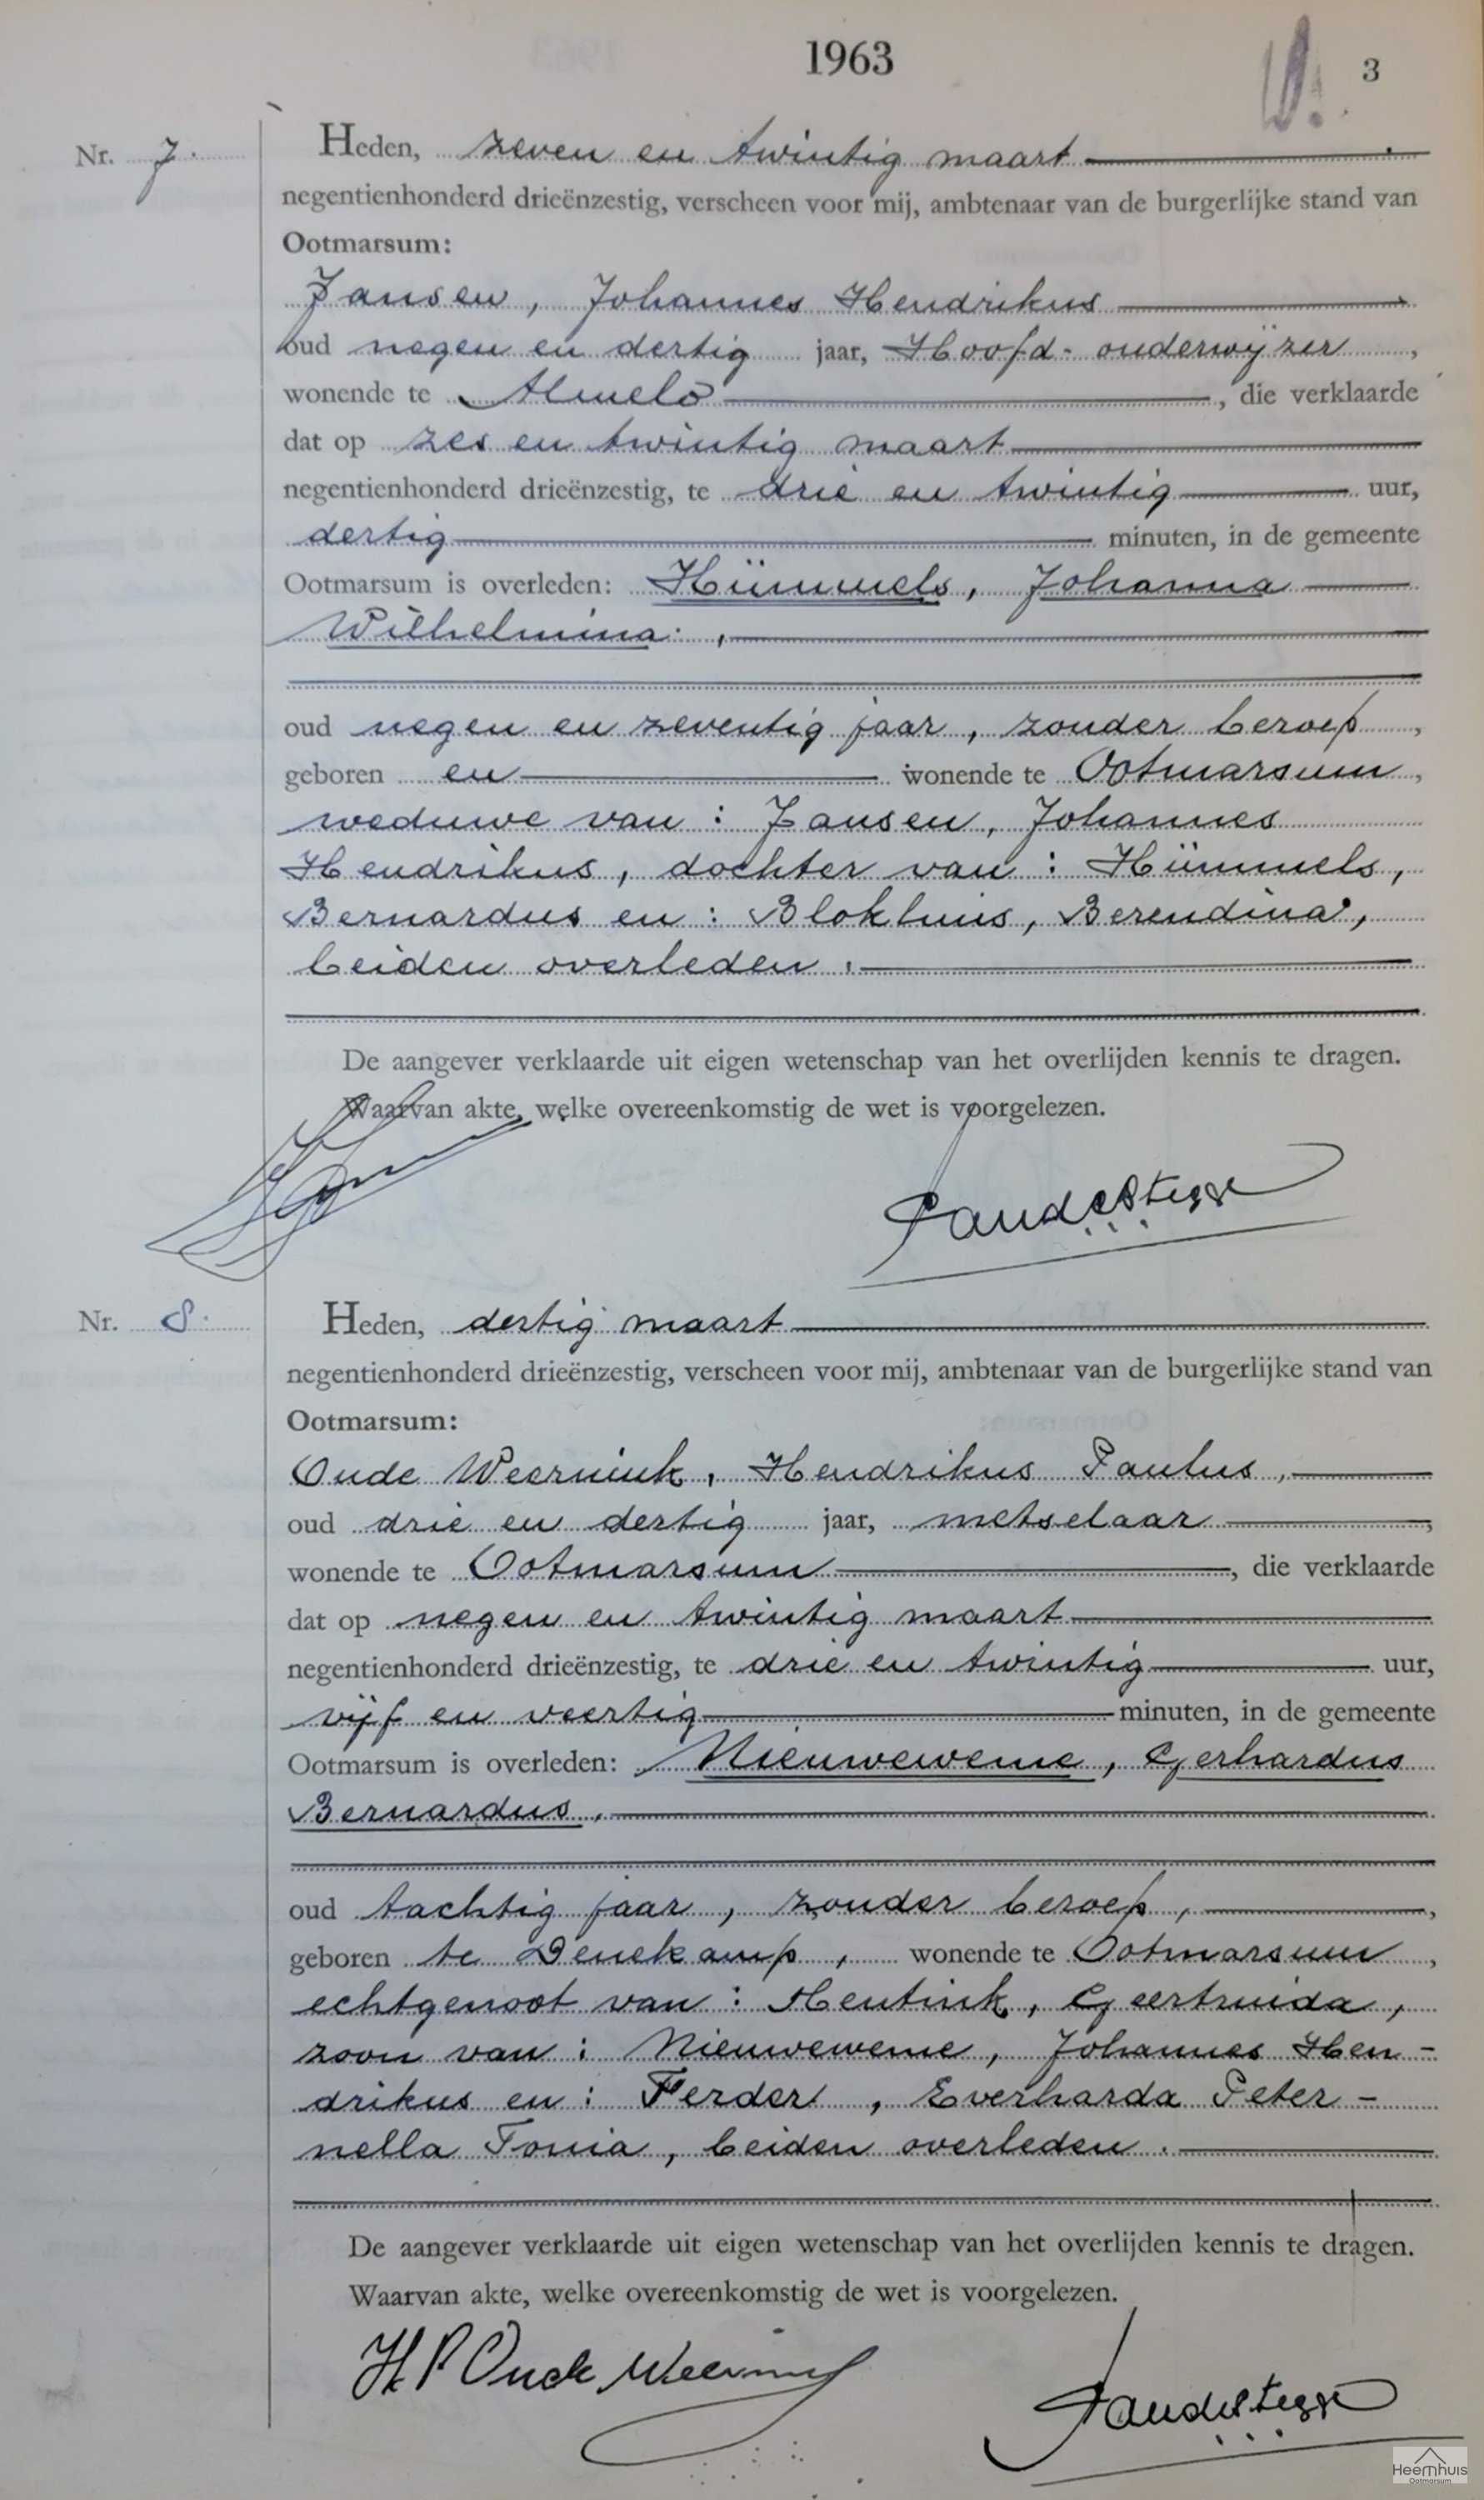 1963
3
Nr. 7.
Heden, zeven en twintig maart
negentienhonderd drieënzestig, verscheen voor mij, ambtenaar van de burgerlijke stand van
Ootmarsum:
Jansen, Johannes Hendrikus
oud negen en dertig jaar, Hoofd-onderwijzer,
wonende te Almelo, die verklaarde
dat op zes en twintig maart
negentienhonderd drieënzestig, te drie en twintig uur,
dertig minuten, in de gemeente
Ootmarsum is overleden: Hümmels, Johanna
Wilhelmina,
oud negen en zeventig jaar, zonder beroep,
geboren en wonende te Ootmarsum,
weduwe van: Jansen, Johannes
Hendrikus, dochter van: Hümmels,
Bernardus en: Blokhuis, Berendina,
beiden overleden.
De aangever verklaarde uit eigen wetenschap van het overlijden kennis te dragen.
Waarvan akte, welke overeenkomstig de wet is voorgelezen.
Nr. 8.
Heden, dertig maart
negentienhonderd drieënzestig, verscheen voor mij, ambtenaar van de burgerlijke stand van
Ootmarsum:
Oude Weernink, Hendrikus Paulus,
oud drie en dertig jaar, metselaar,
wonende te Ootmarsum, die verklaarde
dat op negen en twintig maart
negentienhonderd drieënzestig, te drie en twintig uur,
vijf en veertig minuten, in de gemeente
Ootmarsum is overleden: Nieuweweme, Gerhardus
Bernardus,
oud tachtig jaar, zonder beroep,,
geboren te Denekamp, wonende te Ootmarsum,
echtgenoot van: Hentink, Geertruida,
zoon van: Nieuweweme, Johannes Hen-
drikus en: Ferder, Everharda Peter-
nella Tonia, beiden overleden.
De aangever verklaarde uit eigen wetenschap van het overlijden kennis te dragen.
Waarvan akte, welke overeenkomstig de wet is voorgelezen.
H P Oude Weernink
Heemhuis
Ootmarsum